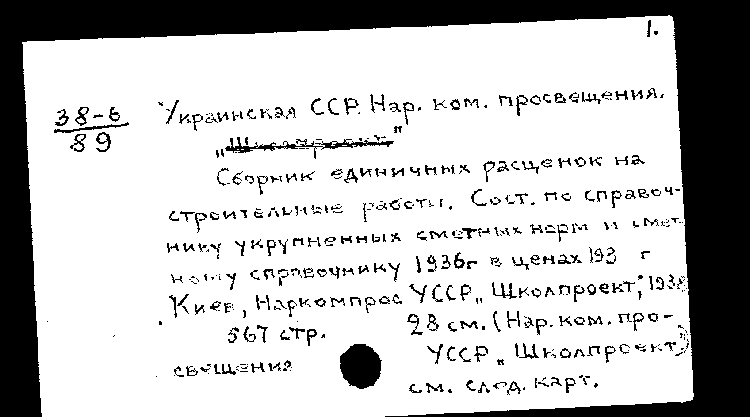 1.
38-6
89
Украинская ССР. Нар. ком. просвещения.
„Школпроект"
Сборник единичных расценок на
строительные работы. Сост. по справоч-
нику укрупненных сметных норм и смет-
ному справочнику 1936г в ценах 193 г
Киев, Наркомпрос УССР „Школпроект", 1938
567 стр. 28 см. (Нар. ком. про-
свещения УССР „Школпроект")
см. след. карт.